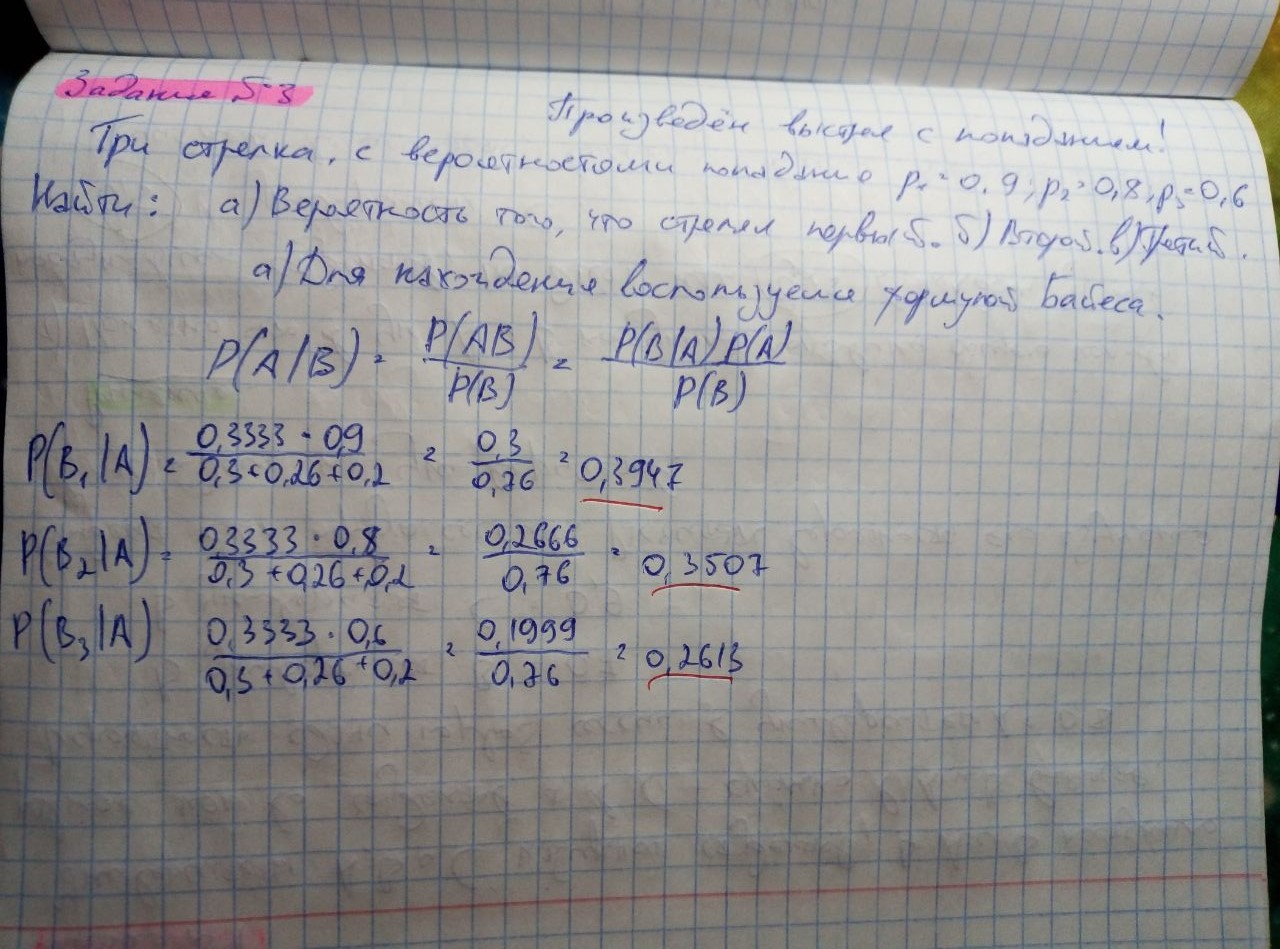 Задание 5-3
Произведён выстрел с попаданием!
Три стрелка, с вероятностями попадания p₁=0.9; p₂=0,8, p₃=0,6
Найти: а) Вероятность того, что стрелял первый. б) Второй. в) Третий.
а) Для нахождения воспользуемся формулой Байеса.
P(A|B) = P(AB)/P(B) = P(B|A)P(A)/P(B)
P(B₁|A) = 0,3333 · 0,9/0,3+0,26+0,2 = 0,3/0,76 = 0,3947
P(B₂|A) = 0,3333 · 0,8/0,3+0,26+0,2 = 0,2666/0,76 = 0,3507
P(B₃|A) 0,3333 · 0,6/0,3+0,26+0,2 = 0,1999/0,76 = 0,2613